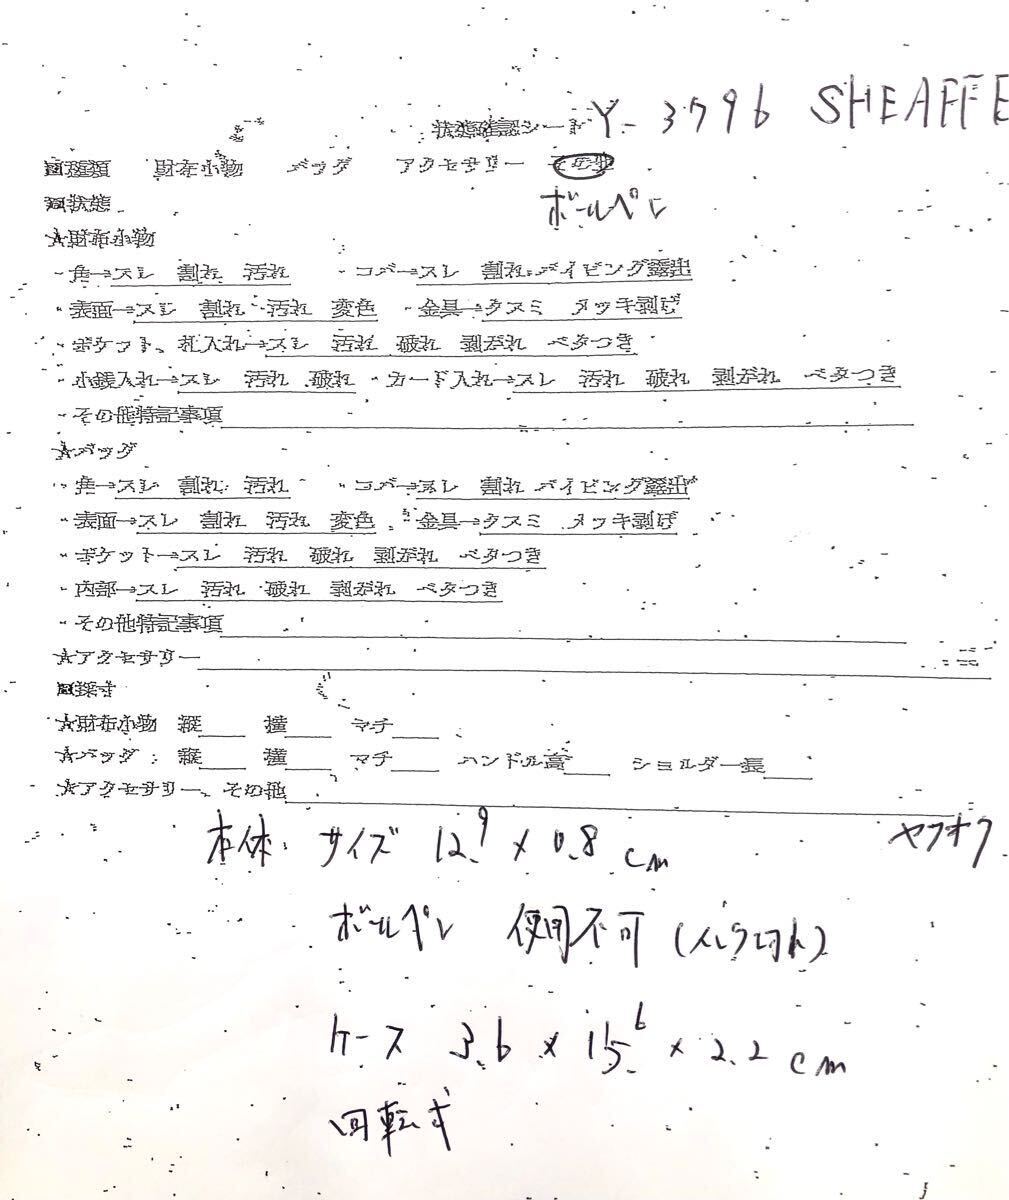 状態確認シート Y-3796 SHEAFFE
☒種類 財布小物 バッグ アクセサリー その他
ボールペン
☒状態
★財布小物
・角→スレ 割れ 汚れ ・コバ→スレ 割れ パイピング露出
・表面→スレ 割れ 汚れ 変色 ・金具→クスミ メッキ剥げ
・ポケット、札入れ→スレ 汚れ 破れ 剥がれ ベタつき
・小銭入れ→スレ 汚れ 破れ ・カード入れ→スレ 汚れ 破れ 剥がれ ベタつき
・その他特記事項
★バッグ
・角→スレ 割れ 汚れ ・コバ→スレ 割れ パイピング露出
・表面→スレ 割れ 汚れ 変色 ・金具→クスミ メッキ剥げ
・ポケット→スレ 汚れ 破れ 剥がれ ベタつき
・内部→スレ 汚れ 破れ 剥がれ ベタつき
・その他特記事項
★アクセサリー
☒採寸
★財布小物 縦 横 マチ
★バッグ: 縦 横 マチ ハンドル高 ショルダー長
★アクセサリー、その他
本体: サイズ 12.9 × 0.8 cm ヤフオク
ボールペン 使用不可 (インク切れ)
ケース 3.6 × 15.6 × 2.2 cm
回転式